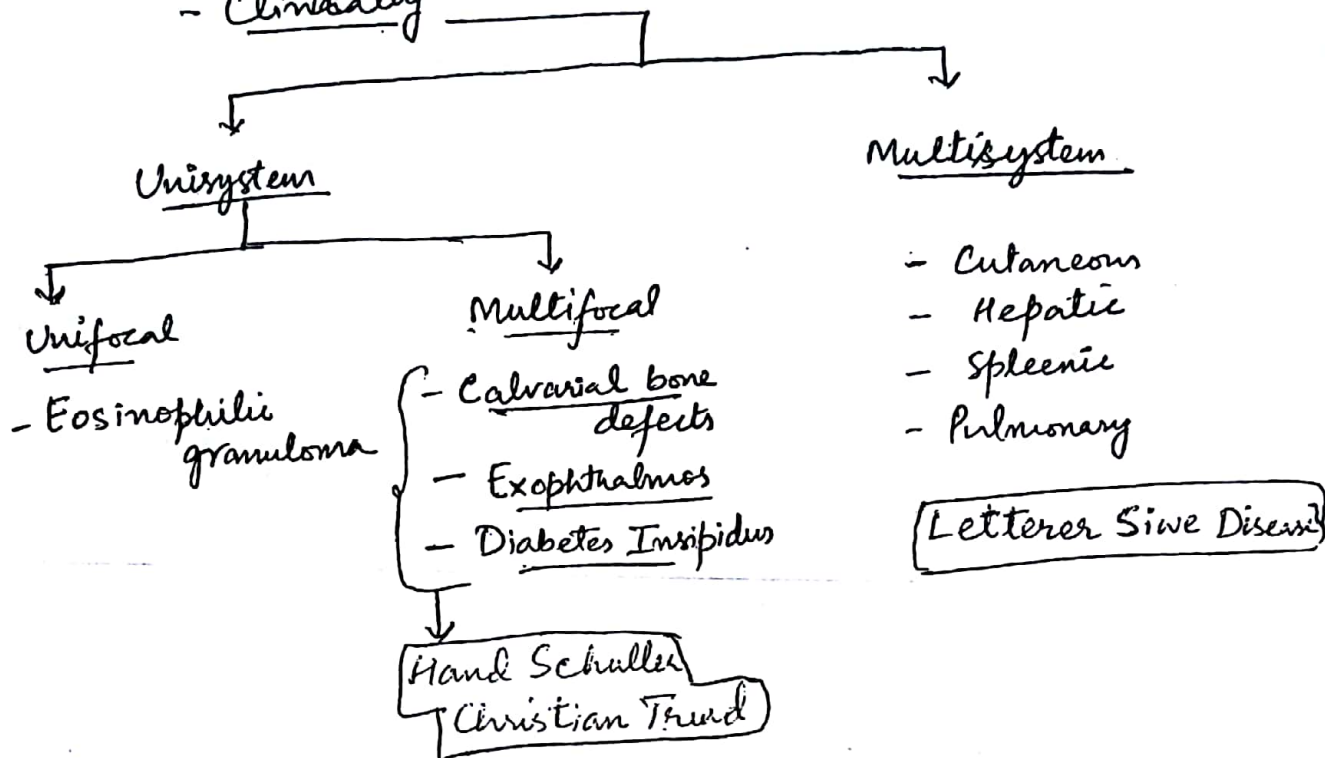 - Clinically
Unisystem
Multisystem
Unifocal
- Eosinophilic
granuloma
Multifocal
- Calvarial bone
defects
- Exophthalmos
- Diabetes Insipidus
Hand Schuller
Christian Triad
- Cutaneous
- Hepatic
- Spleenic
- Pulmonary
Letterer Siwe Disease